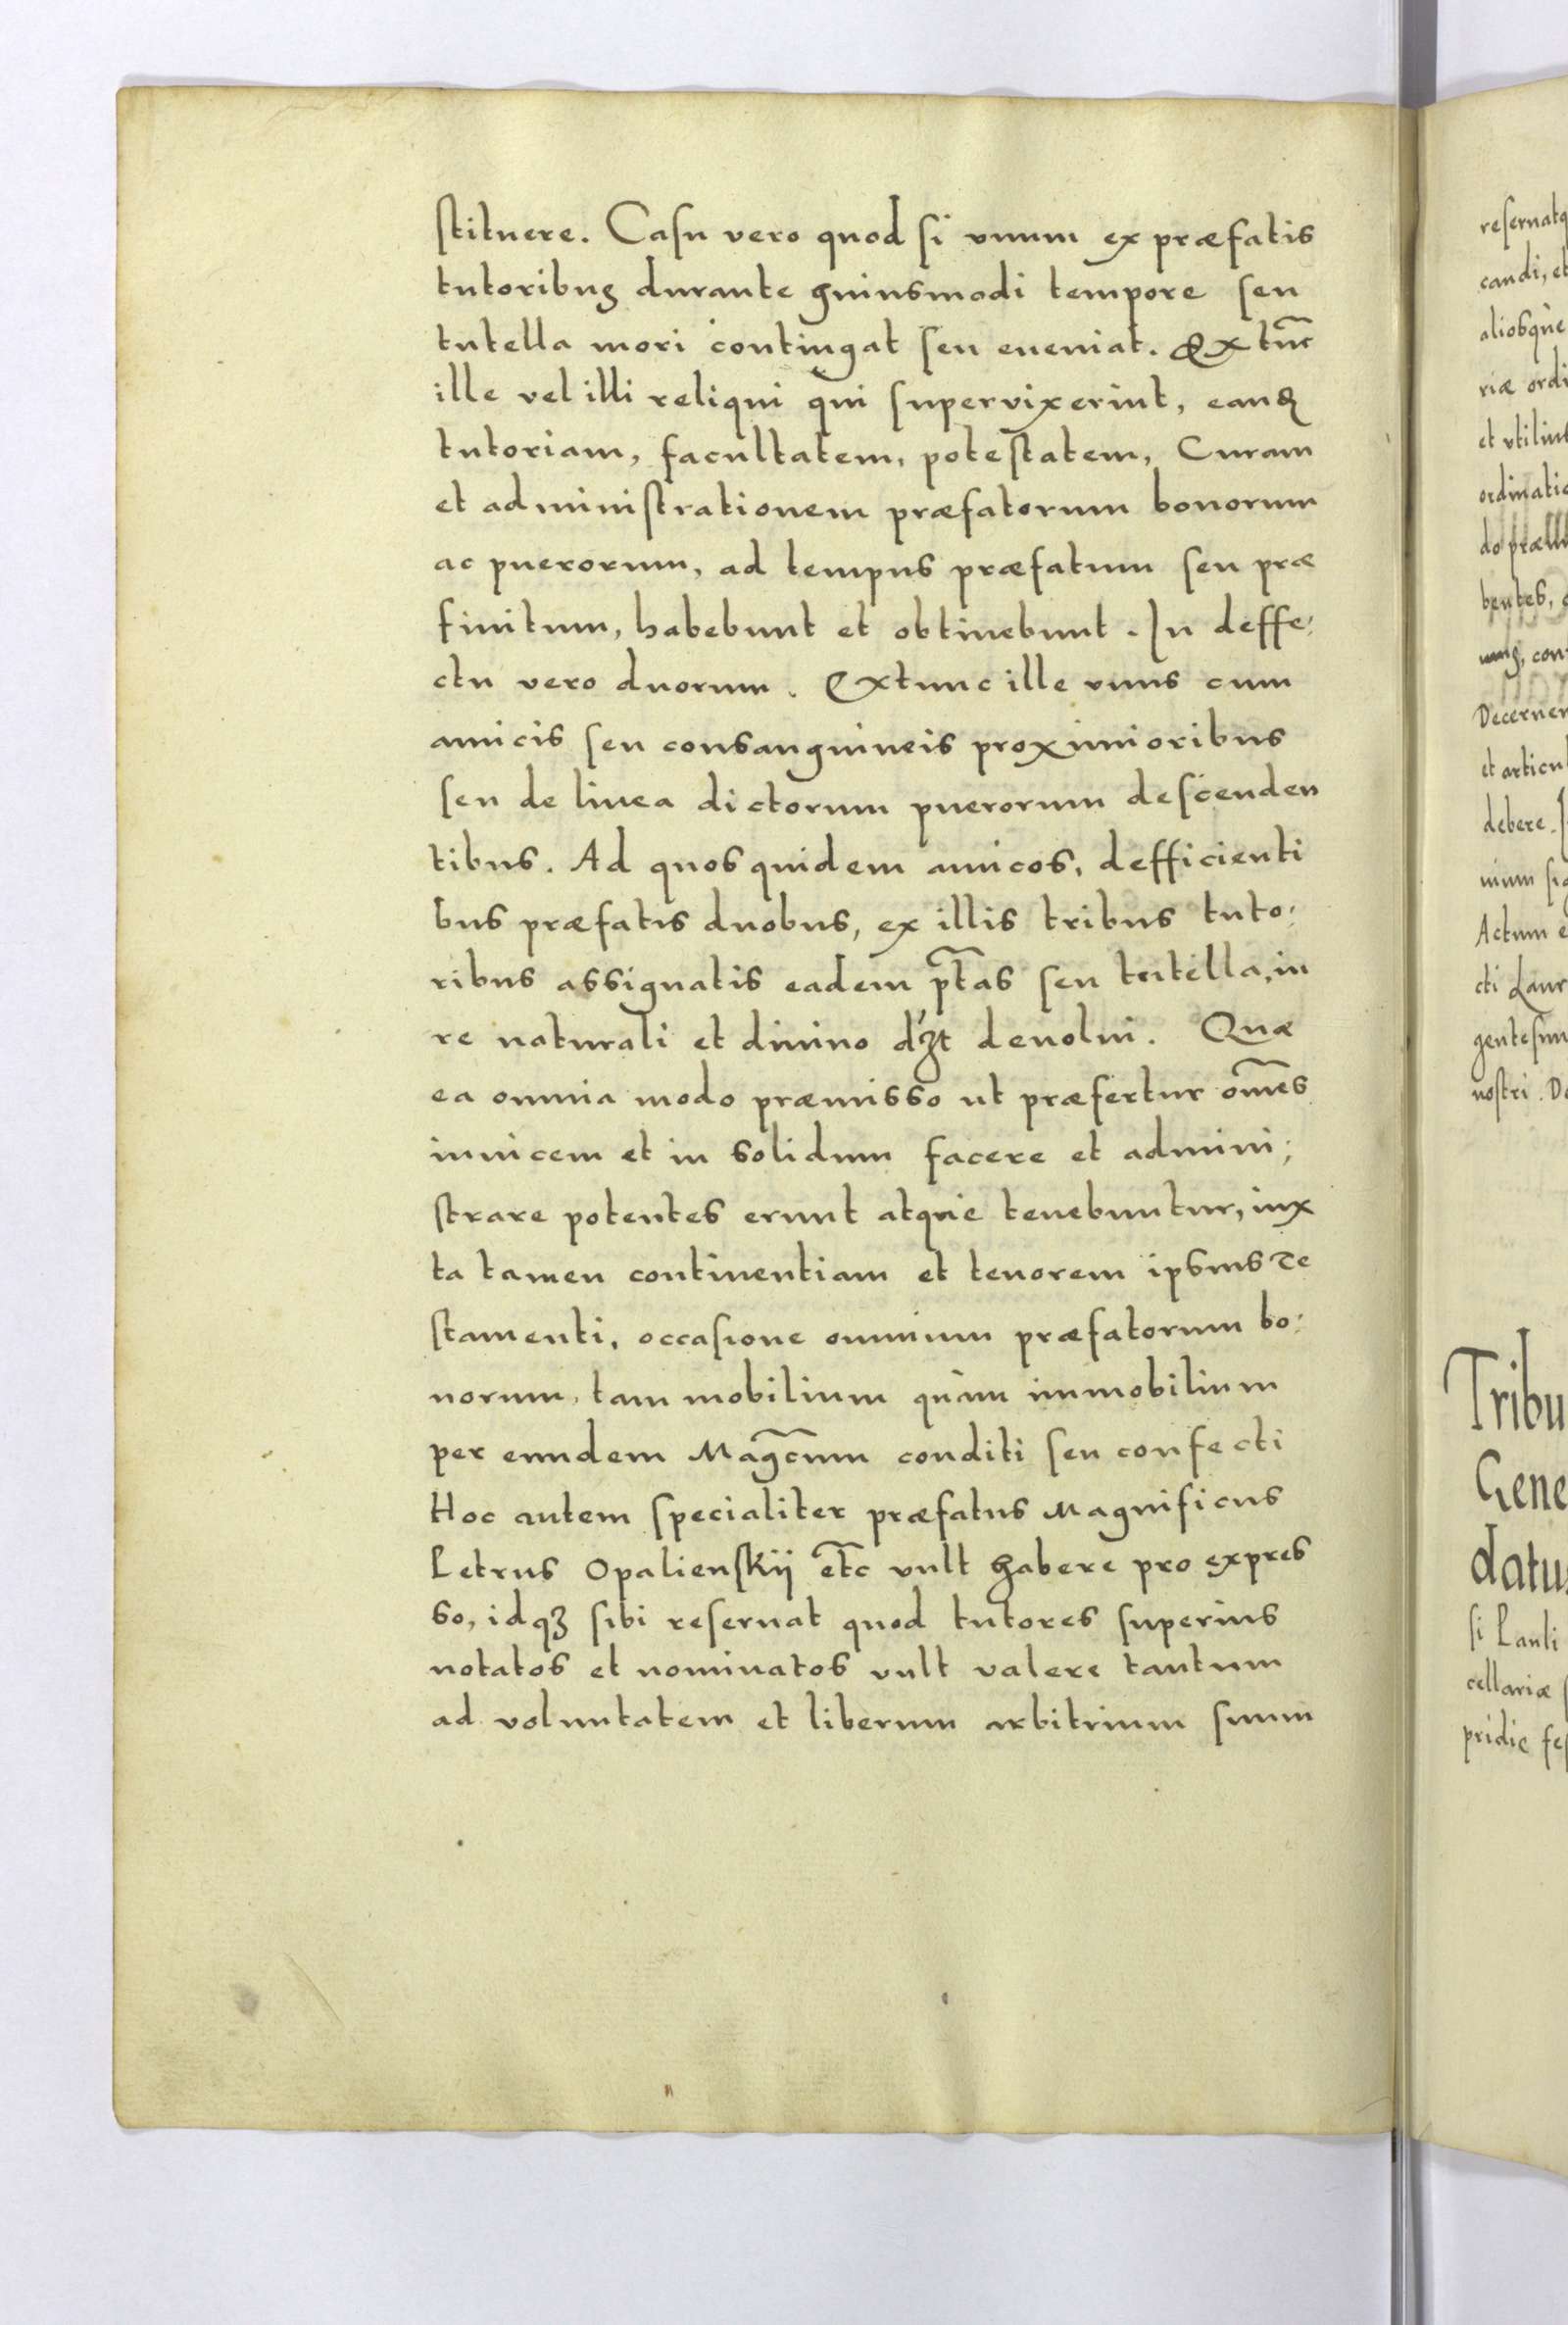 stituere. Casu vero quod si vnum ex præfatis
tutoribus durante huiusmodi tempore seu
tutella mori contingat seu eueniat. Extunc
ille vel illi reliqui qui supervixerint, eand
tutoriam, facultatem, potestatem, Curam
et administrationem præfatorum bonorum
ac puerorum, ad tempus præfatum seu præ
finitum, habebunt et obtinebunt. In deffe:
ctu vero duorum. Extunc ille vnus cum
amicis seu consanguineis proximioribus
seu de linea dictorum puerorum descenden
tibus. Ad quos quidem amicos, defficienti
bus præfatis duobus, ex illis tribus tuto:
ribus assignatis eadem ptas seu tutella, iu
re naturali et diuino dʒt deuolui. Quæ
ea omnia modo præmisso ut præfertur omes
inuicem et in solidum facere et admini;
strare potentes erunt atque tenebuntur, iux
ta tamen continentiam et tenorem ipsius te
stamenti, occasione omnium præfatorum bo:
norum, tam mobilium quàm immobilium
per eundem Magcum conditi seu confecti
Hoc autem specialiter præfatus Magnificus
Petrus Opalienskij etc vult habere pro expres
so, idqʒ sibi reseruat quod tutores superius
notatos et nominatos vult valere tantum
ad voluntatem et liberum arbitrium suum
candi, et
aliosque
riæ ordi
et vtilin
debere.
Actum e
nostri. D
Tribu
Gene
datus
si Pauli
cellariæ
pridie fes